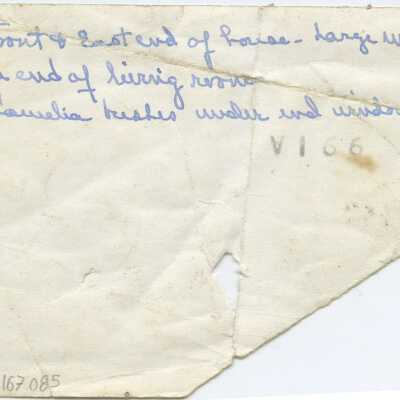 ront & East end of house - Large w
end of living room
amelia bushes under end windo
V166
167.085